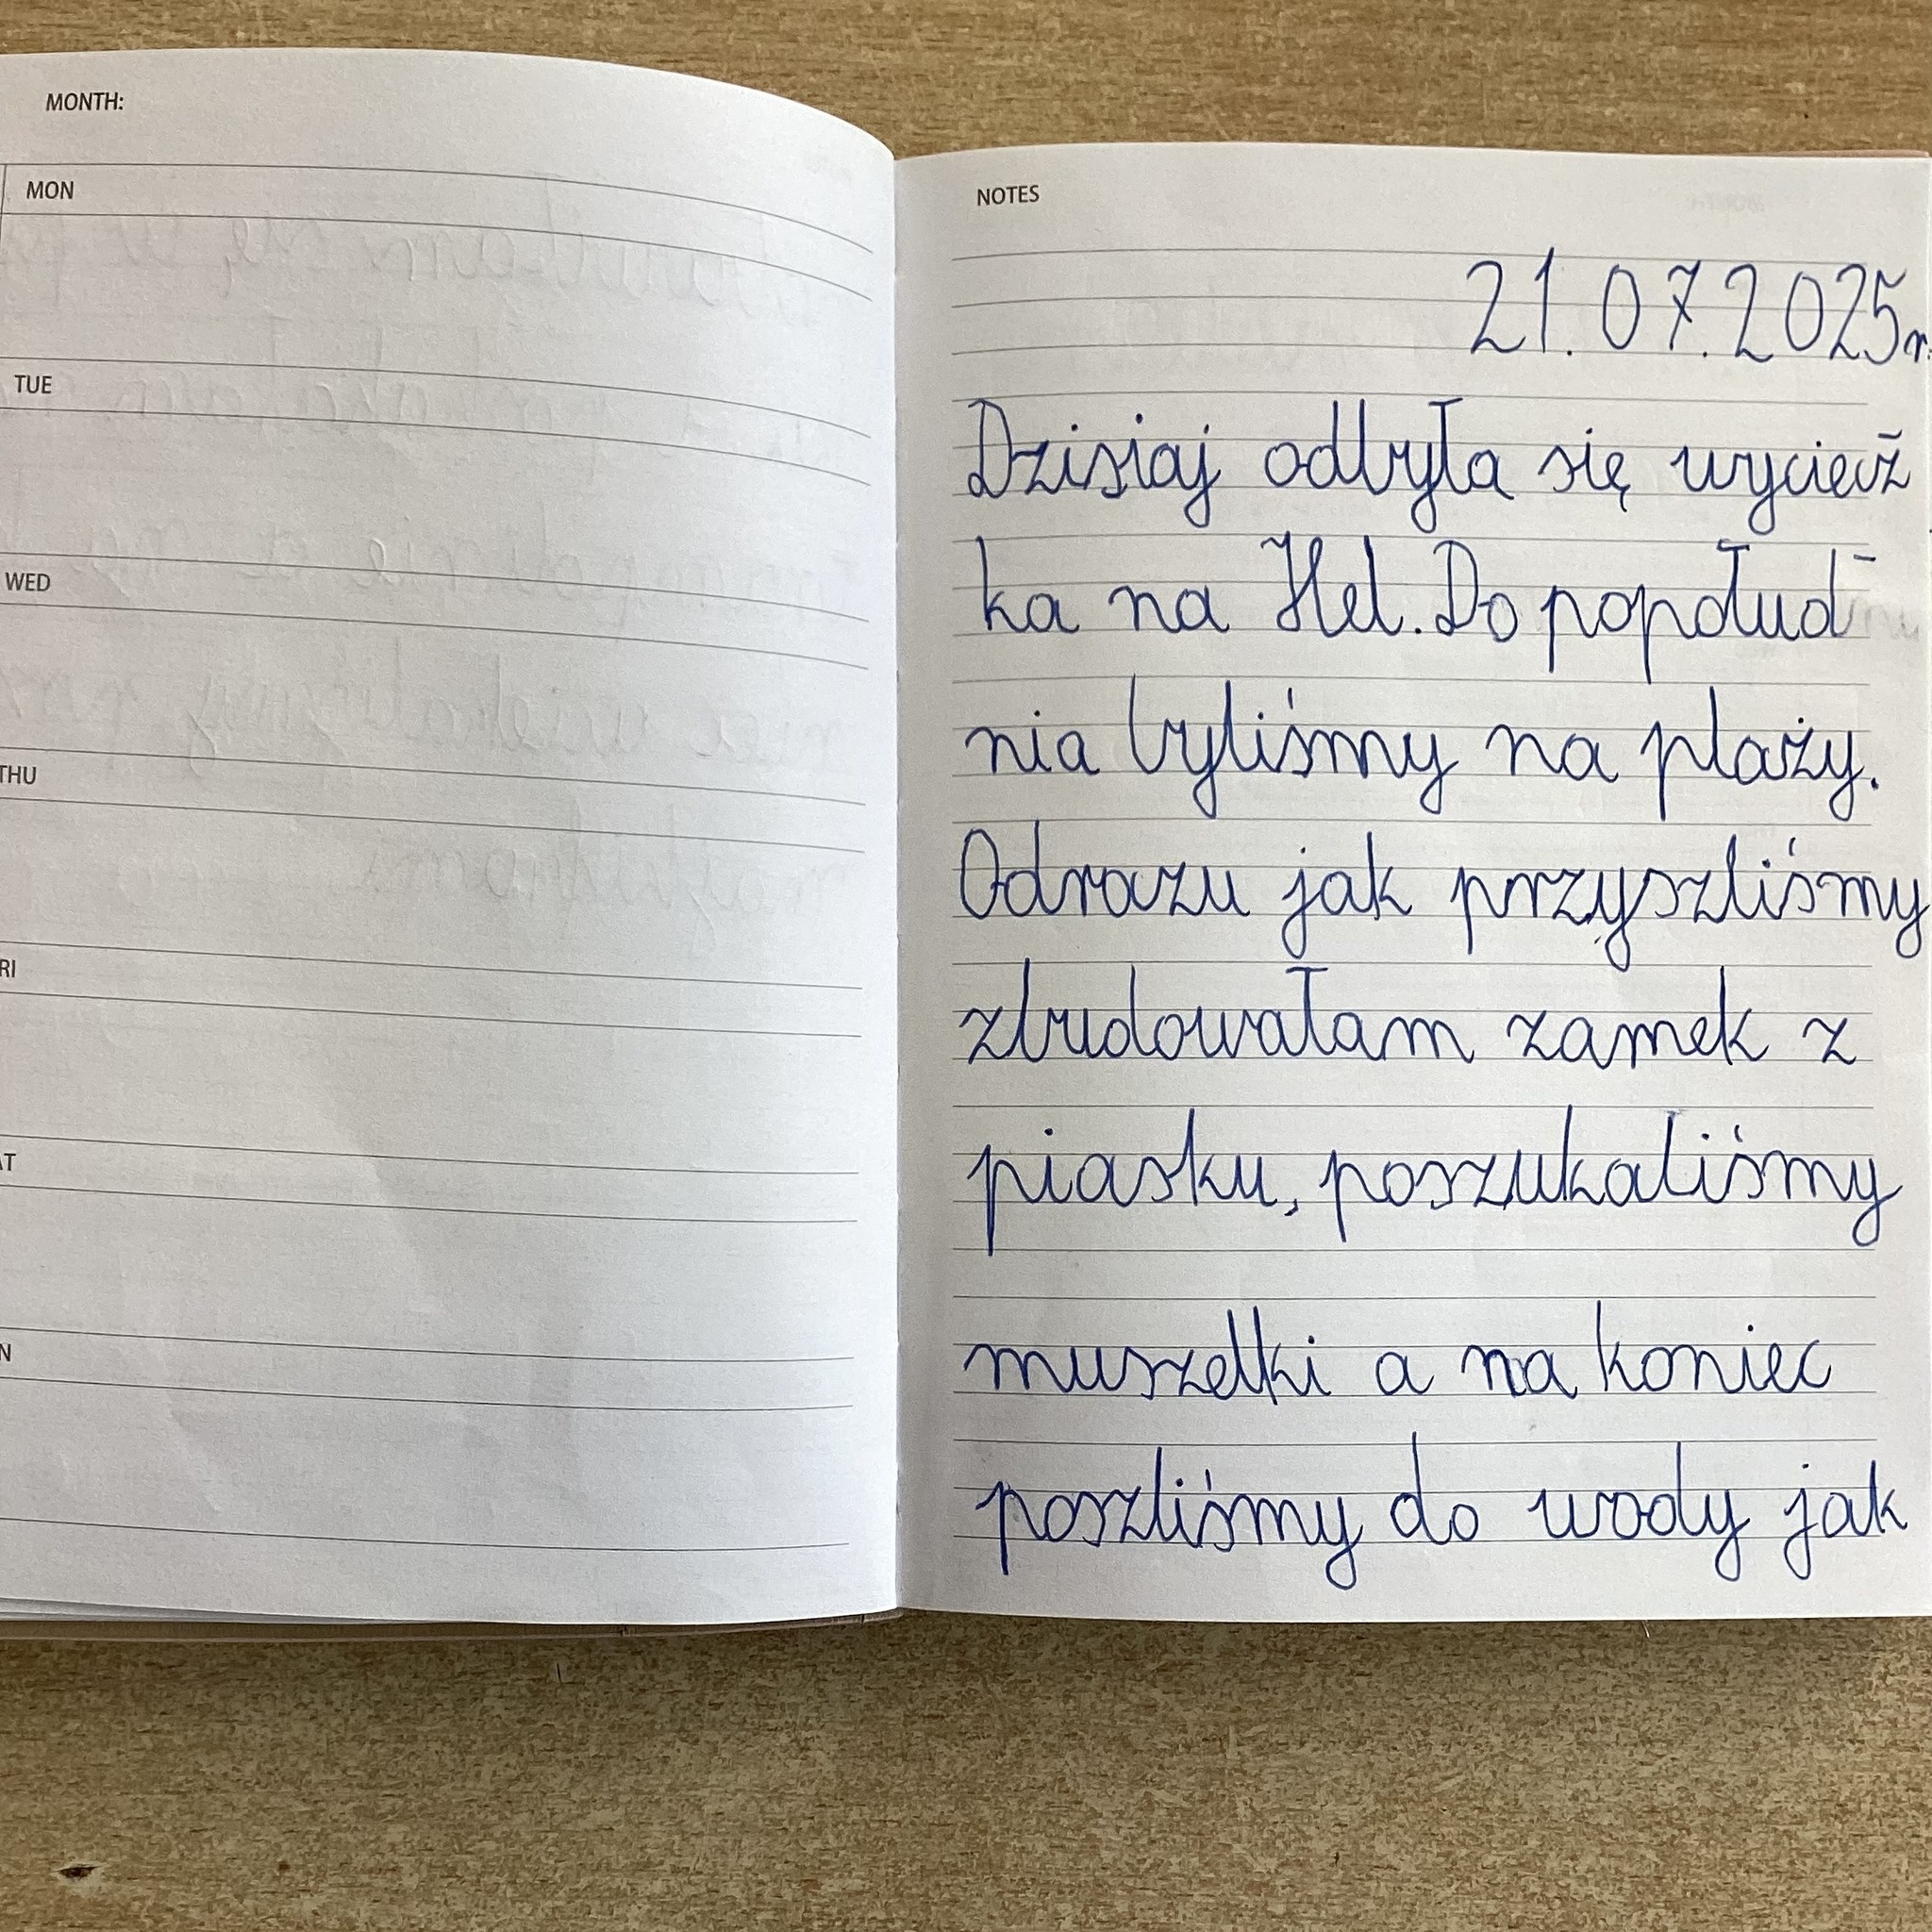 MONTH:
MON
TUE
WED
THU
RI
AT
N
NOTES
21.07.2025r.
Dzisiaj odbyła się wyciecz-
ka na Hel. Do popołud-
nia byliśmy na plaży.
Odrazu jak przyszliśmy
zbudowałam zamek z
piasku, poszukaliśmy
muszelki a na koniec
poszliśmy do wody jak